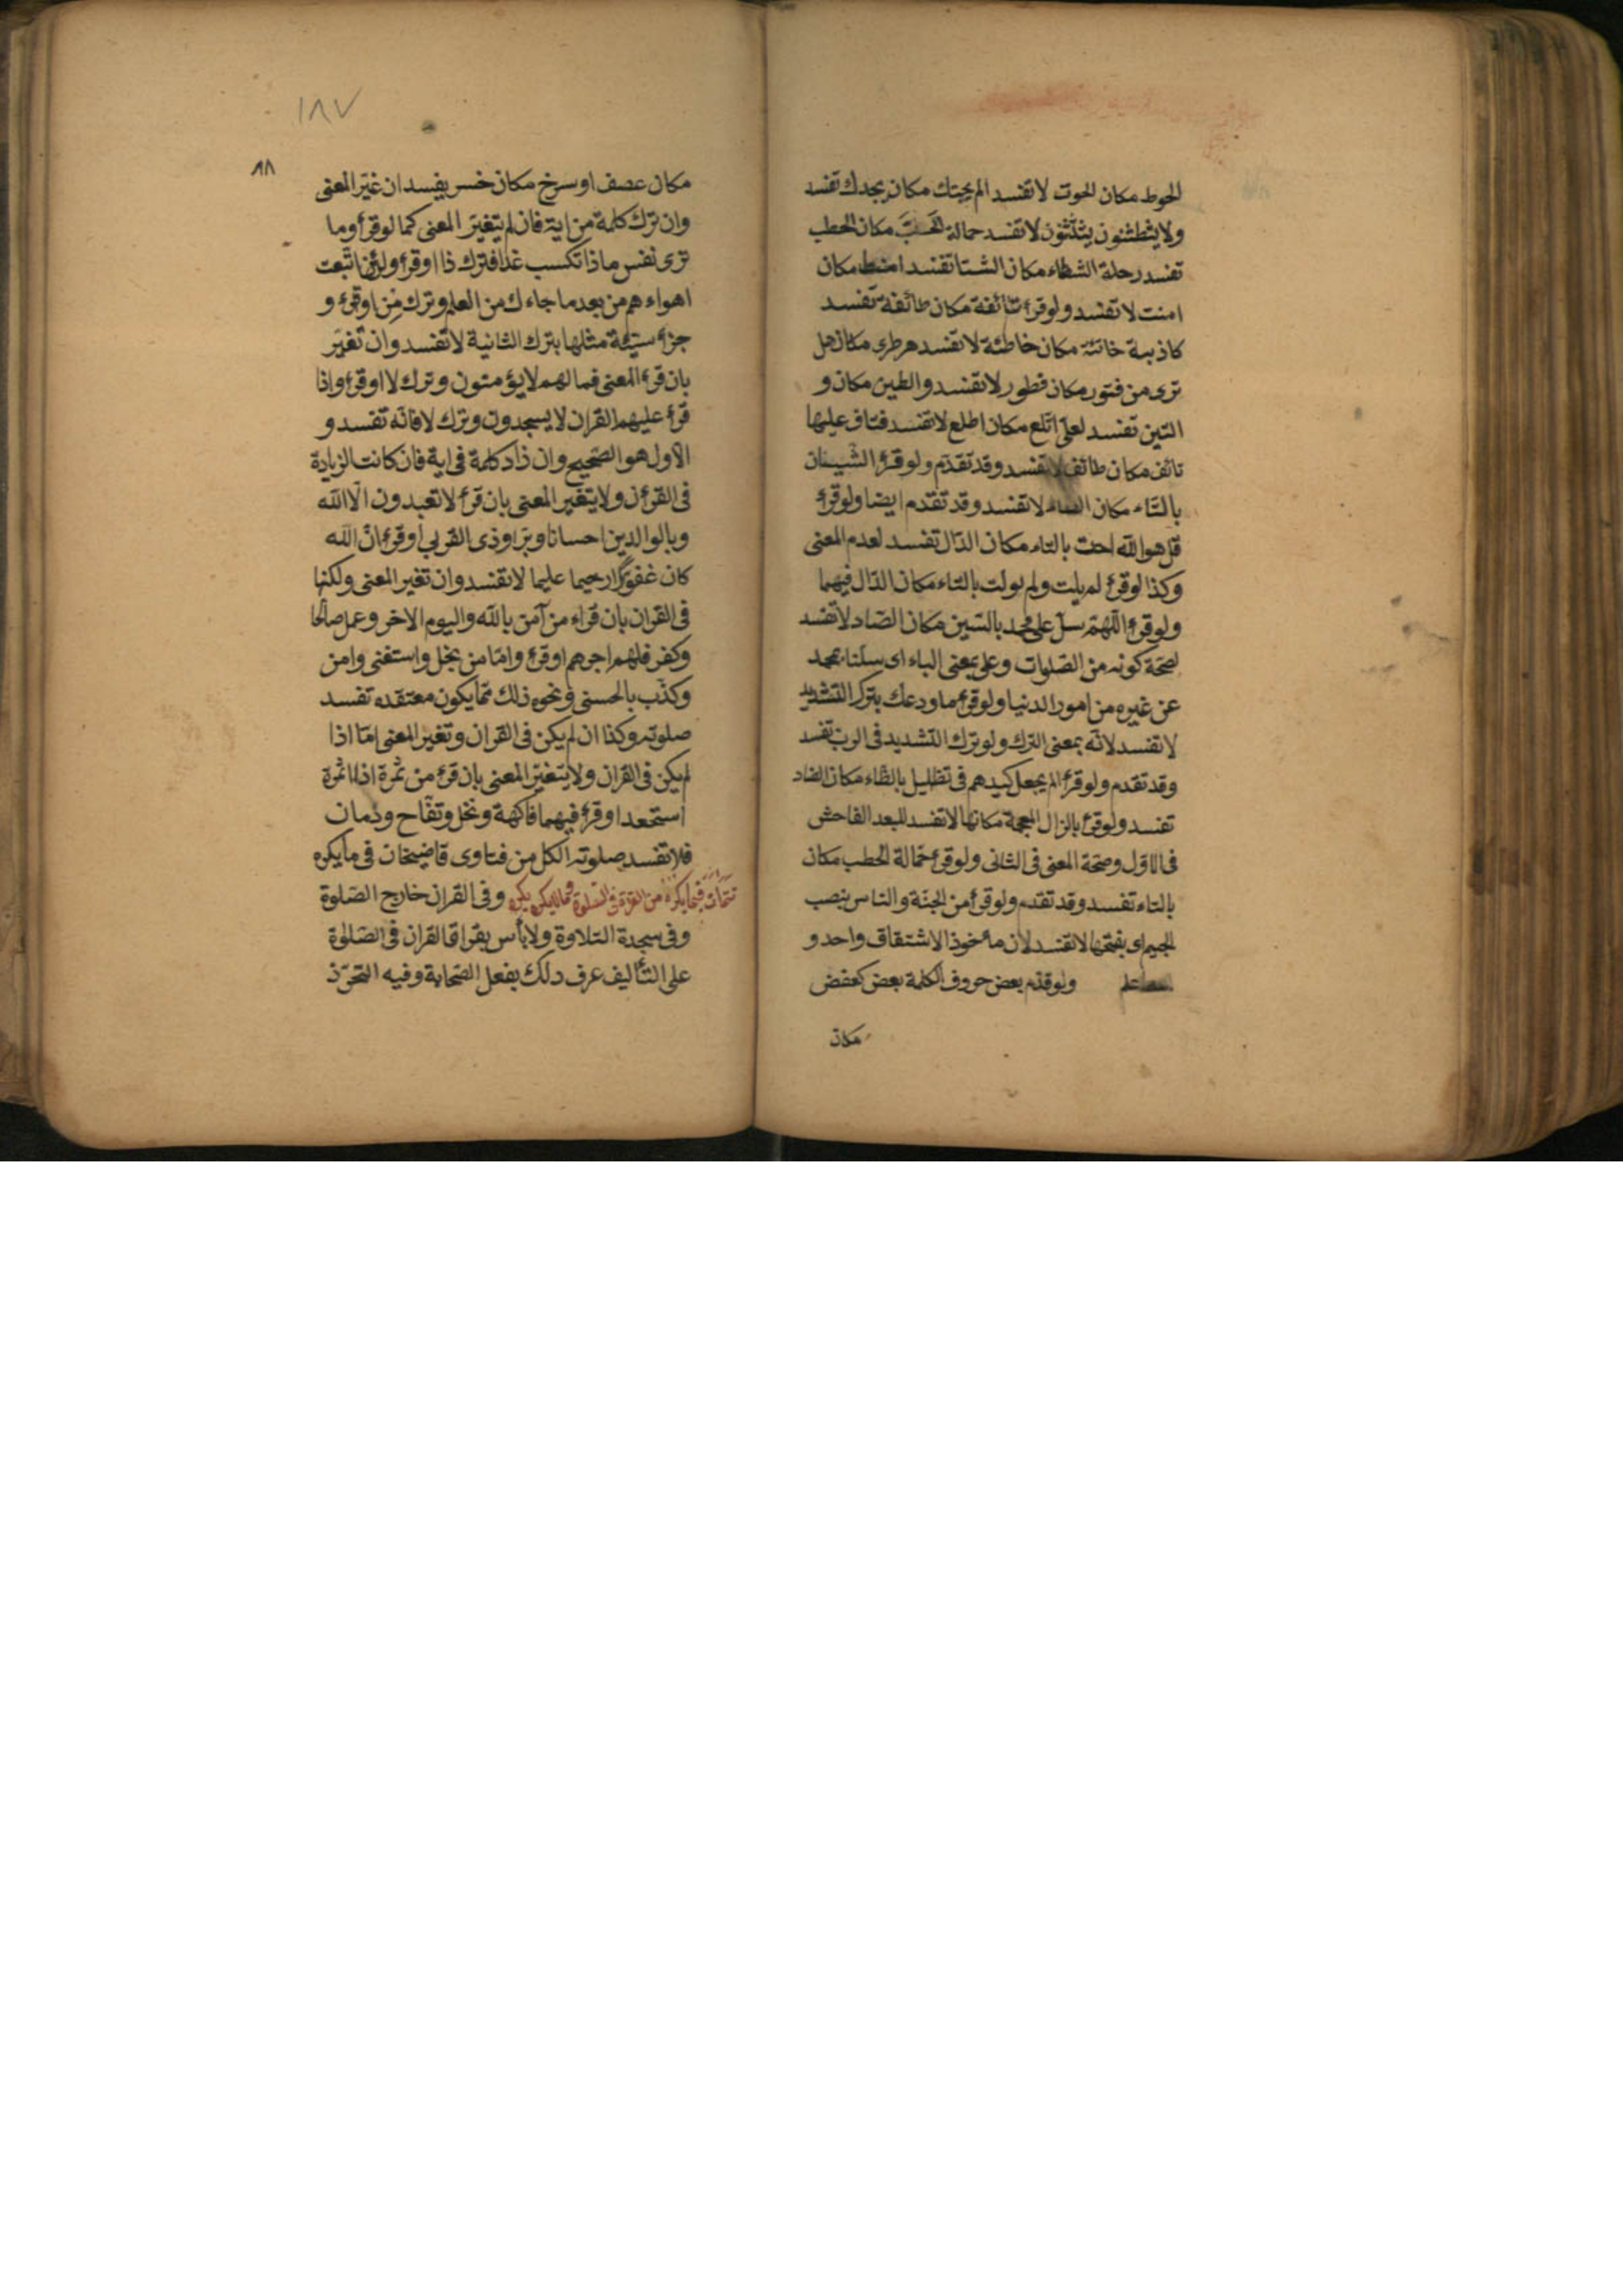 الحوط مكان الحوت لا تفسد الم يجتك مكان يجدك تفسد
ولا يثطثنون يثتثنون لا تفسد حمالة مكان الحطب
تفسد رحلة الشطاء مكان الشتا تفسد امنط مكان
امنت لا تفسد ولو قرئ تائفة مكان طائفة تفسد
كاذبة خاتئة مكان خاطئة لا تفسد هرطرى مكان هل
ترى من فتور مكان فطور لا تفسد والطين مكان و
التين تفسد لعلى اتلع مكان اطلع لا تفسد فتاف عليها
تائف مكان طائف لا تفسد وقد تقدم ولو قرئ الشيتان
بالتاء مكان الطاء لا تفسد وقد تقدم ايضا ولو قرئ
قل هو الله احت بالتاء مكان الدال تفسد لعدم المعنى
وكذا لو قرئ لم يلت ولم يولت بالتاء مكان الدال فيهما
ولو قرئ اللهم سل على محمد بالسين مكان الصاد لا تفسد
لصحة كونه من الصلوات وعلى بمعنى الباء اى سلنا بمحمد
عن غيره من امور الدنيا ولو قرئ ما ودعك بترك التشديد
لا تفسد لانه بمعنى الترك ولو ترك التشديد فى الرب تفسد
وقد تقدم ولو قرئ الم يجعل كيدهم فى تظليل بالظاء مكان الضاد
تفسد ولو قرئ بالزال المعجمة مكانها لا تفسد للبعد الفاحش
فى الاول وصحة المعنى فى الثانى ولو قرئ حمالة الحطب مكان
بالتاء تفسد وقد تقدم ولو قرئ من الجنة والناس بنصب
الجيم اى بفتحها لا تفسد لان مأخوذ الاشتقاق واحد و
اعلم ولو قدم بعض حروف الكلمة بعض كعفص
مكان
١٨٧
٨٨
مكان عصف او سرخ مكان خسر يفسد ان غير المعنى
وان ترك كلمة من اية فان لم يتغير المعنى كما لو قرأ وما
ترى نفس ماذا تكسب غدا فترك ذا او قرأ ولئن اتبعت
اهواءهم من بعد ما جاءك من العلم وترك من او قرئ و
جزؤ سيئة مثلها بترك الثانية لا تفسد وان تغير
بان قرء المعنى فما لهم لا يؤمنون وترك لا او قرئ واذا
قرئ عليهم القران لا يسجدون وترك لا فانه تفسد و
الاول هو الصحيح وان ذاد كلمة فى اية فان كانت الزيادة
فى القرأن ولا يتغير المعنى بان قرأ لا تعبدون الا الله
وبالوالدين احسانا وبرا وذى القربى او قرئ ان الله
كان غفورا رحيما عليما لا تفسد وان تغير المعنى ولكنها
فى القران بان قراء من آمن بالله واليوم الاخر وعمل صالحا
وكفر فلهم اجرهم او قرئ واما من بخل واستغنى وامن
وكذب بالحسنى ونحو ذلك مما يكون معتقده تفسد
صلوته وكذا ان لم يكن فى القران وتغير المعنى اما اذا
لم يكن فى القران ولا يتغير المعنى بان قرئ من ثمرة اذا اثمرة
استحعد او قرئ فيهما فاكهة ونخل وتفاح ورمان
فلا تفسد صلوته الكل من فتاوى قاضيخان فى ما يكره
تتمات فيما يكره من القرأة فى الصلوة وما لا يكره يكره وفى القران خارج الصلوة
وفى سجدة التلاوة ولا بأس بقراة القران فى الصلوة
على التأليف عرف دلك بفعل الصحابة وفيه التحرز